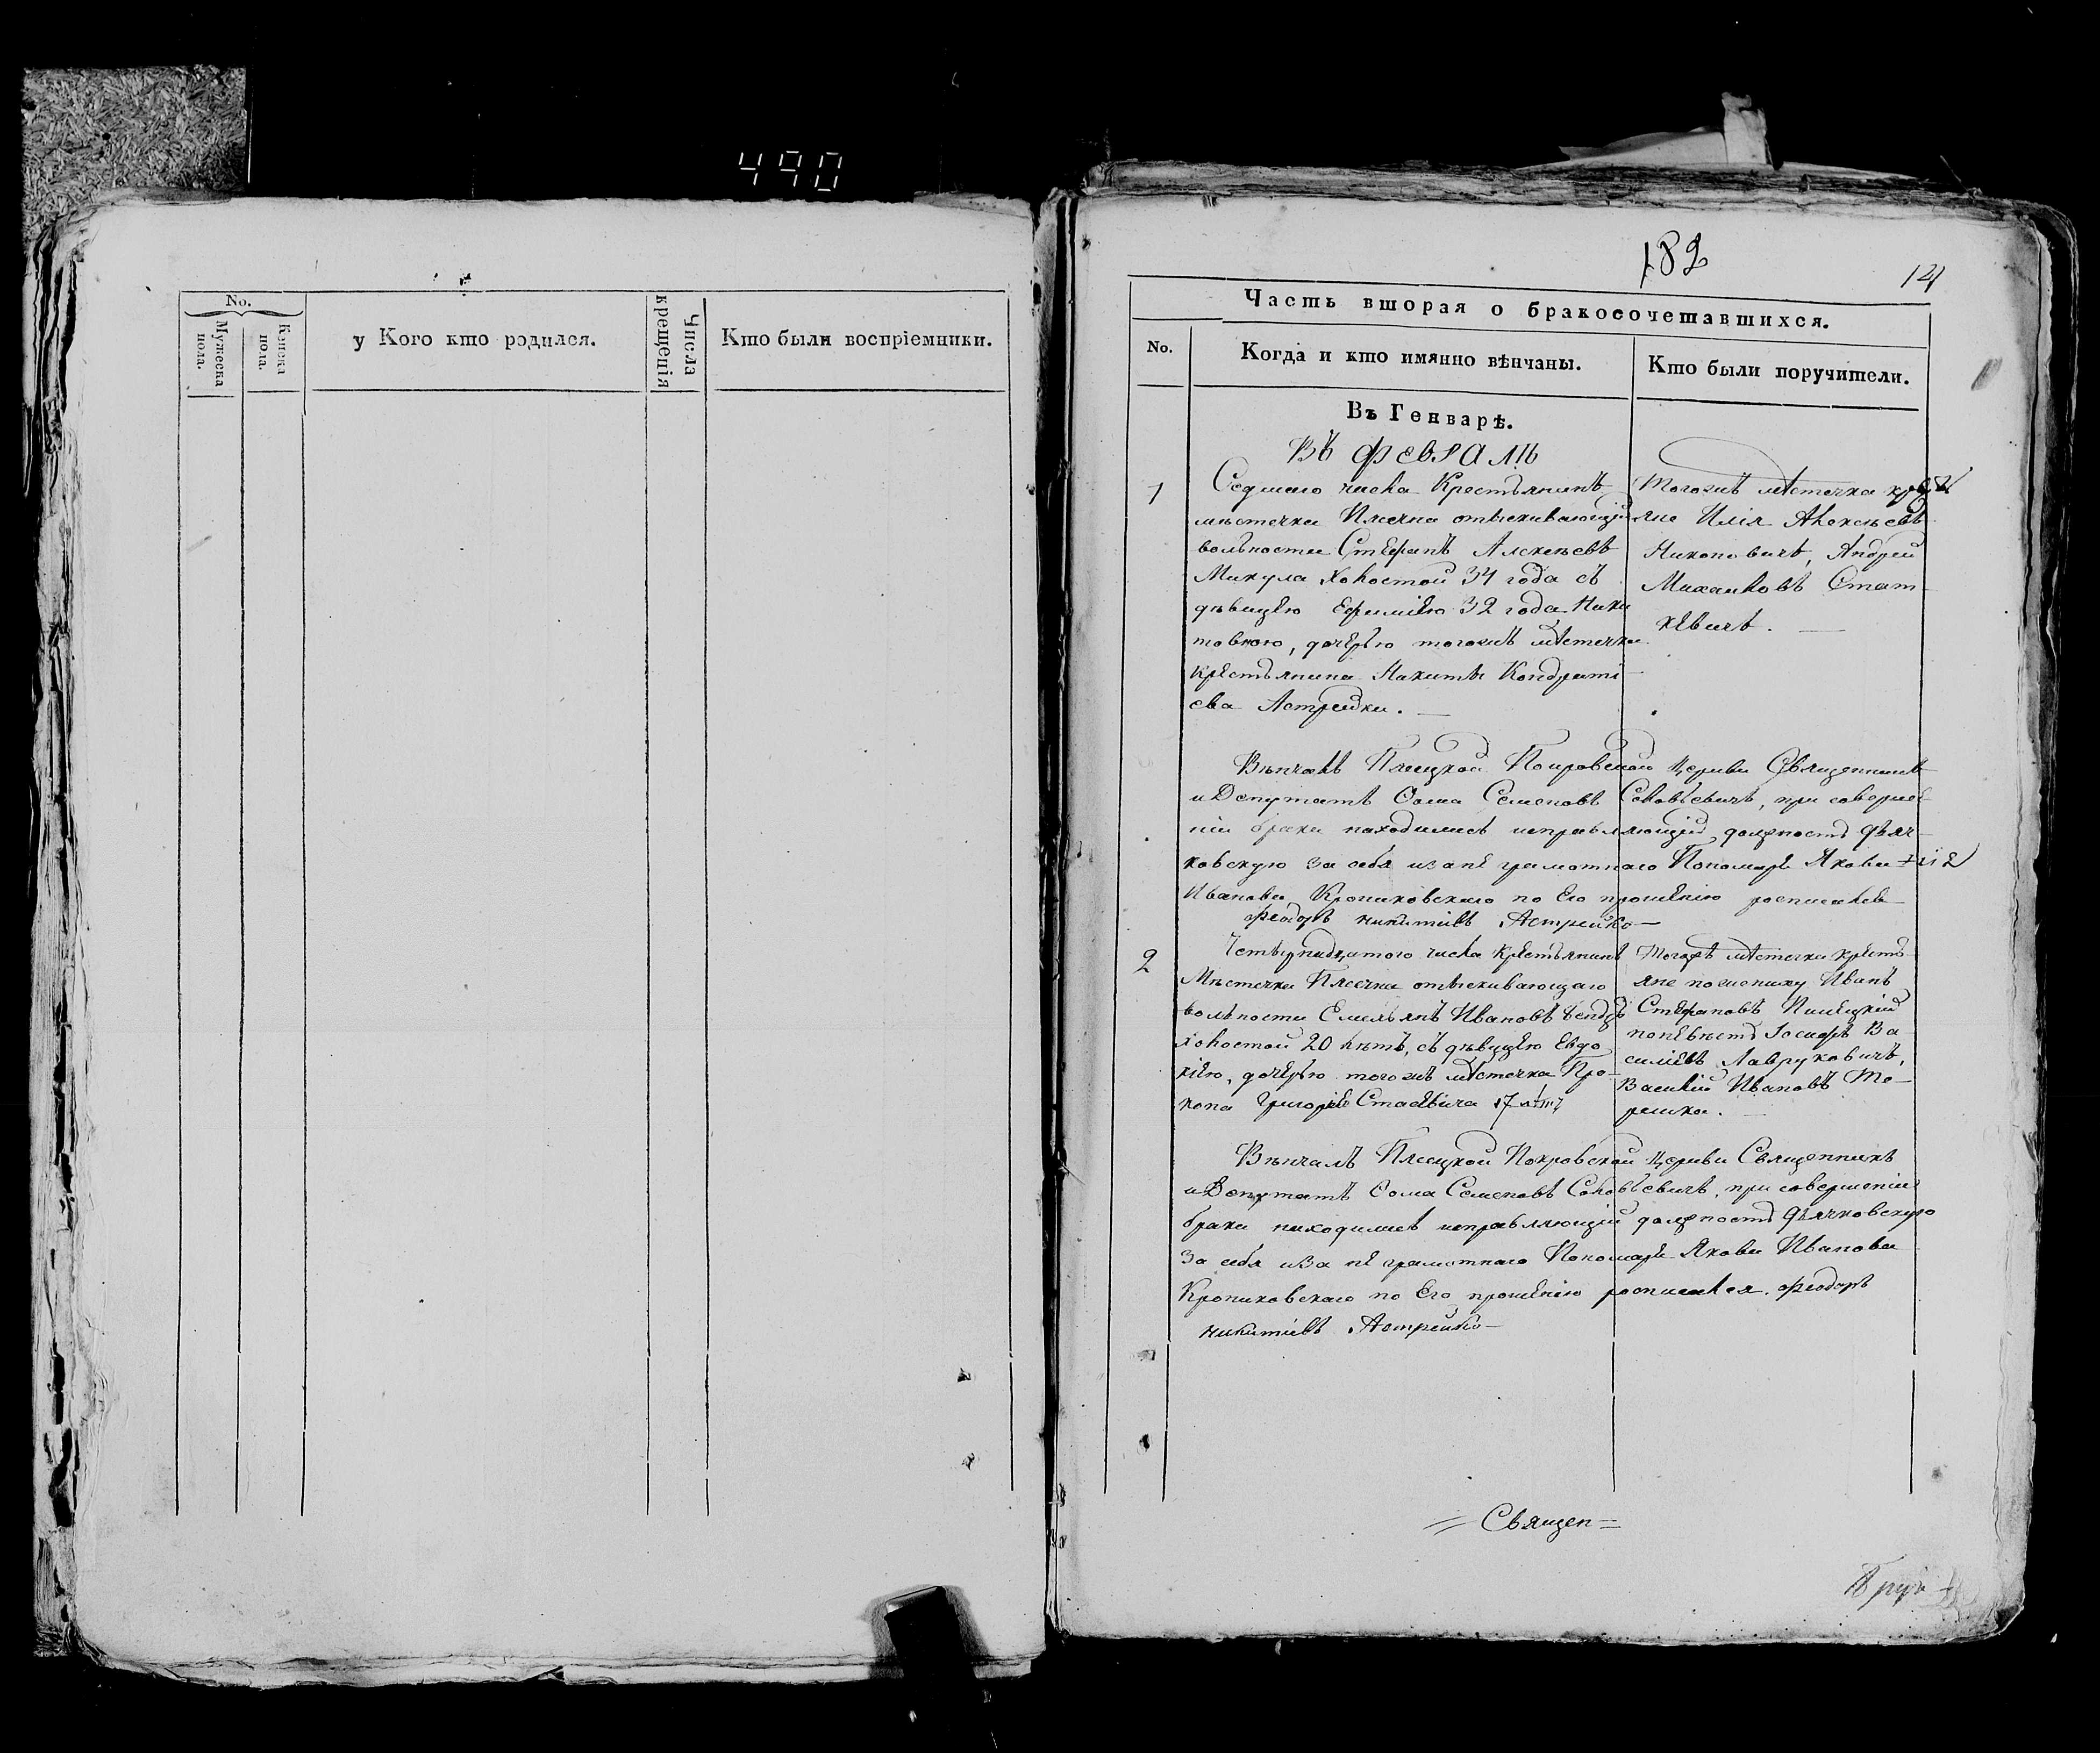 490
No.
Мужеска пола.
Женска пола.
у Кого кто родился.
Числа крещенія
Кто были воспріемники.
182
Часть вторая о бракосочетавшихся.
No.
Когда и кто имянно вѣнчаны.
Кто были поручители.
Въ Генварѣ.
Въ февралѣ
1
Седмаго числа Крестьянинъ
мѣстечка Плечна отыскивающій
вольности Стефанъ Алексѣевъ
Микула холостой 34 года съ
дѣвицею Ефиміею 32 года Ники
товною, дочерью тогожъ мѣстечка
крестьянина Никиты Кондраті
ева Астрейки.
Тогожъ мѣстечка крестья
яне Илія Алексѣевъ
Никоновичъ, Андрей
Михайловъ Стат
кевичъ.
Вѣнчалъ Плецкой Покровской церкви Священникъ
и Депутатъ Ѳома Семеновъ Соловьевичъ, при соверше
ніи брака находился исправляющій должность дьяч
ковскую за себя и за не грамотнаго Пономаря Якова
Иванова Кропиковского по Его прошенію росписался
Феодоръ Никитіевъ Астрейко
2
Четырнадцатого числа Крестьянинъ
Мѣстечка Плечна отыскивающаго
вольности Емельянъ Ивановъ
холостой 20 лѣтъ, съ дѣвицею Евдо
кіею, дочерью тогожъ мѣстечка Про
копа Григорьева Стасевича 17 лѣтъ
Тогожъ мѣстечка кресть
яне по жениху Иванъ
Стефановъ
по невѣстѣ Іосифъ Ва
силіевъ Лавруковичъ,
Василій Ивановъ Те
решка.
Вѣнчалъ Плецкой Покровской церкви Священникъ
и Депутатъ Ѳома Семеновъ Соловьевичъ, при совершеніи
брака находился исправляющій должность дьячковскую
За себя и За не грамотнаго Пономаря Якова Иванова
Кропиковского по Его прошенію росписался Феодоръ
Никитіевъ Астрейко
Священ